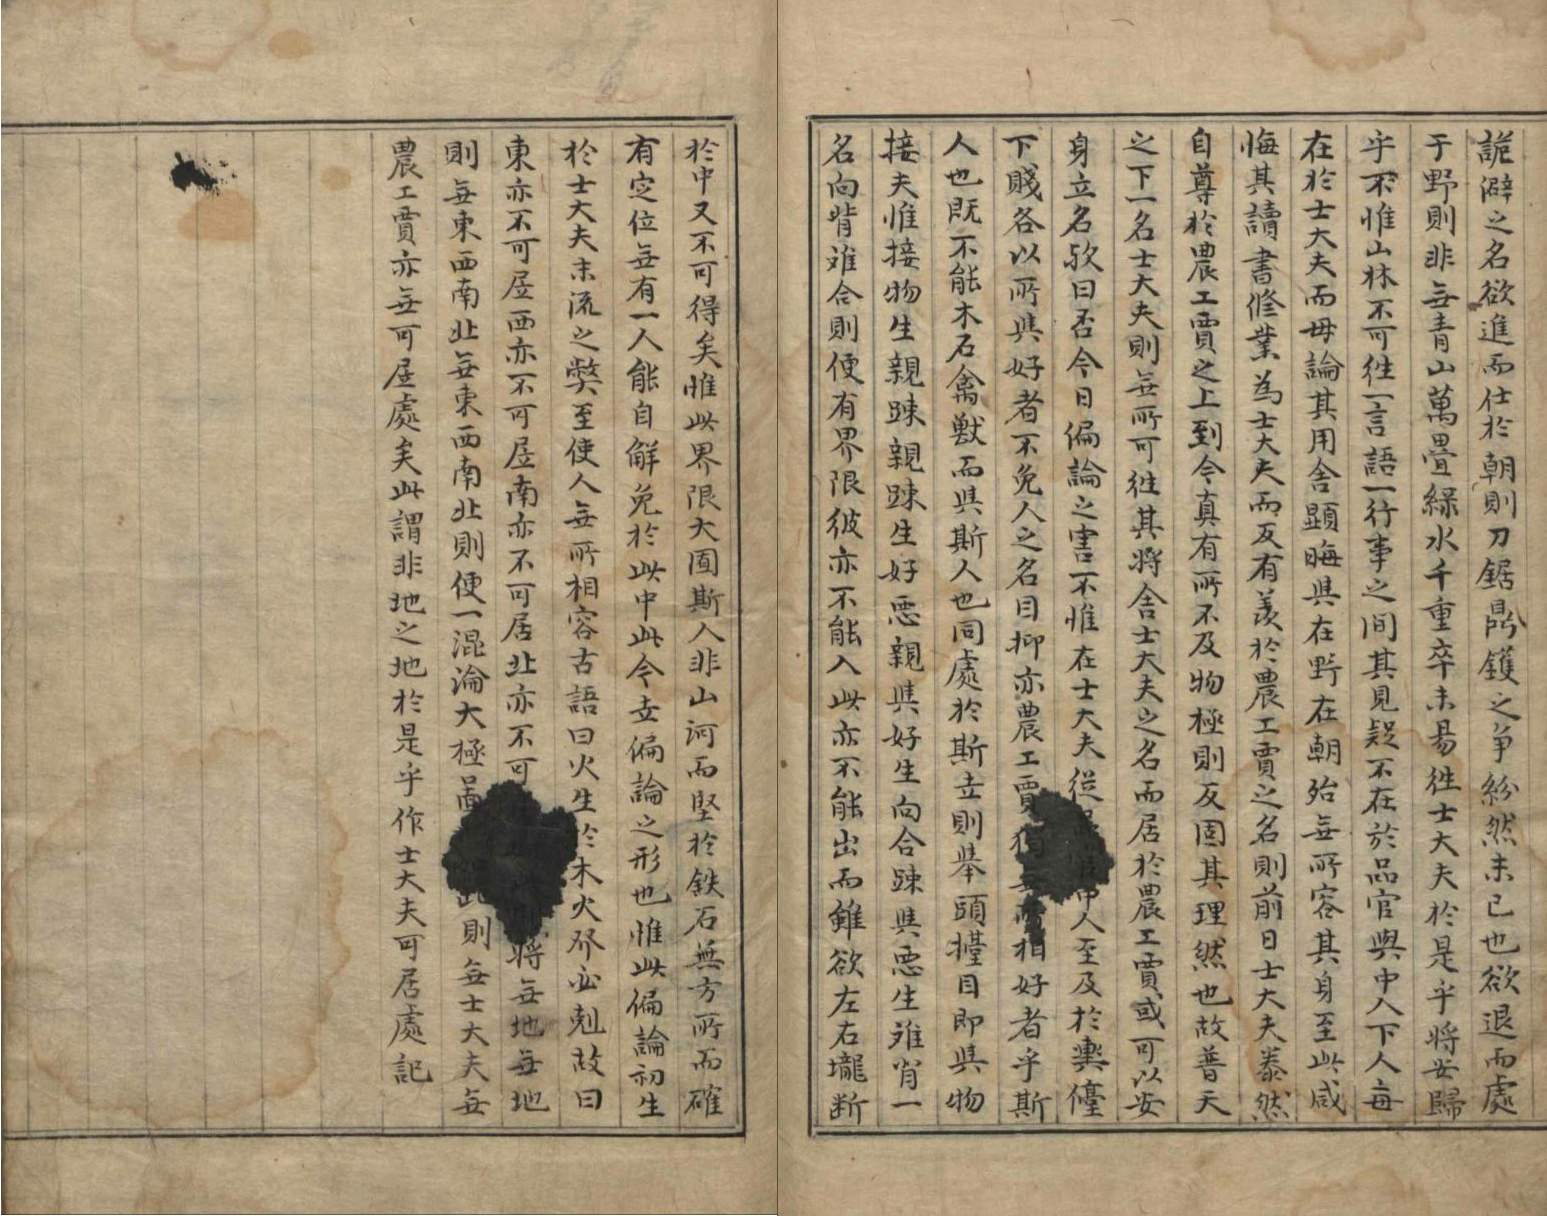 詭僻之名欲進而仕於朝則刀鋸鼎鑊之爭紛然未已也欲退而處
于野則非無青山萬疊綠水千重卒未易徃士大夫於是乎將安歸
乎不惟山林不可徃一言語一行事之间其見疑不在於品官與中人下人每
在於士大夫而毋論其用舍顯晦與在野在朝殆無所容其身至此咸
悔其讀書修業為士大夫而反有羨於農工賈之名則前日士大夫泰然
自尊於農工賈之上到今真有所不及物極則反固其理然也故普天
之下一名士大夫則無所可徃其將舍士大夫之名而居於農工賈或可以安
身立名歟曰否今日偏論之害不惟在士大夫從品中人至及於輿儓
下賤各以所與好者不免人之名目抑亦農工賈相好者乎斯
人也既不能木石禽獸而與斯人也同處於斯立則舉頭擡目即與物
接夫惟接物生親踈親踈生好惡親與好生向合踈與惡生难背一
名向背难合則便有界限彼亦不能入此亦不能出而雖欲左右壠断
於中又不可得矣惟此界限大囿斯人非山河而堅於鉄石無方所而確
有定位無有一人能自解免於此中此今古偏論之形也惟此偏論初生
於士大夫末流之弊至使人無所相容古語曰火生於木火發必尅故曰
東亦不可居西亦不可居南亦不可居北亦不可將無地無地
則無東西南北無東西南北則便一混淪太極啚則無士大夫無
農工賈亦無可居處矣此謂非地之地於是乎作士大夫可居處記